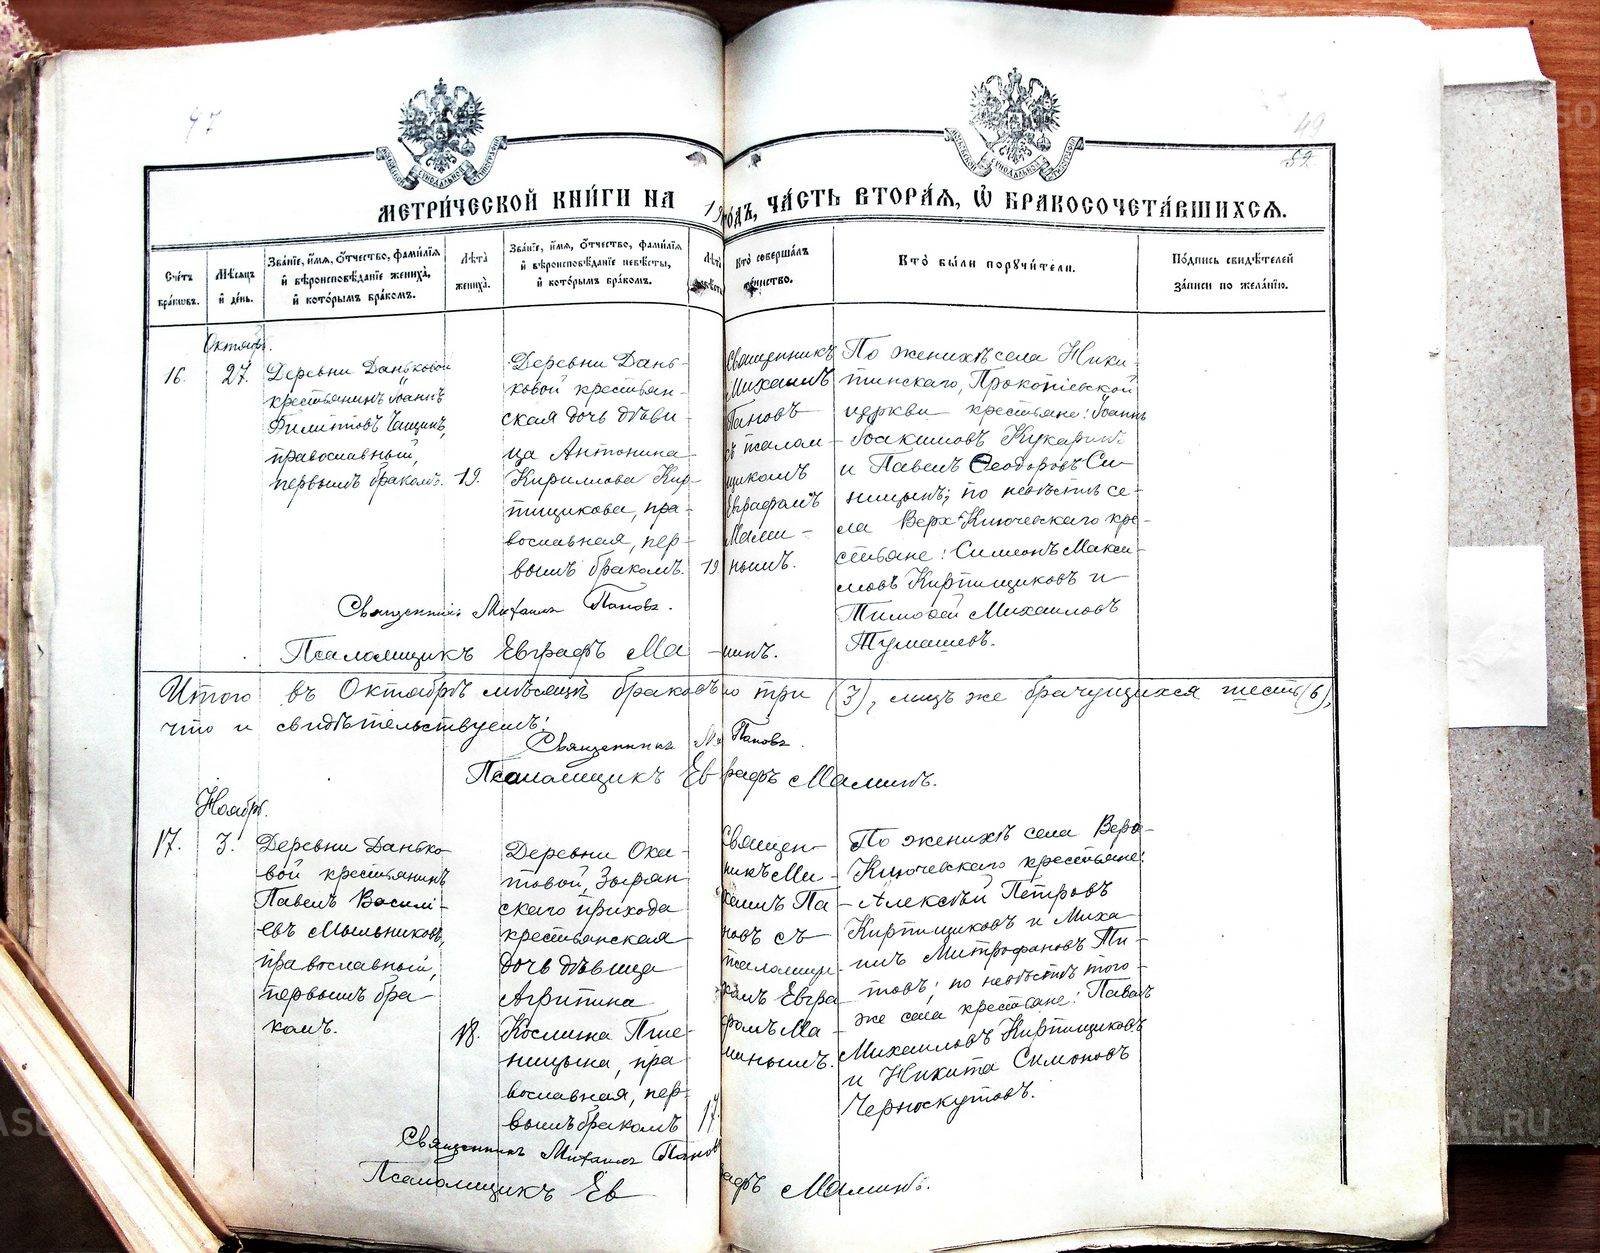 47
49
52
МЕТРИ́ЧЕСКОЙ КНИ́ГИ НА 19 ГОДЪ, ЧА́СТЬ ВТОРА́Я, Ѡ БРАКОСОЧЕТА́ВШИХСЯ.
Счетъ бра́ковъ.
Мѣсяцъ и де́нь.
Зва́нїе, и́мя, о́тчество, фами́лїя и вѣроисповѣ́данїе жениха́, и кото́рымъ бра́комъ.
Лѣта жениха.
Зва́нїе, и́мя, о́тчество, фами́лїя и вѣроисповѣ́данїе невѣ́сты, и кото́рымъ бра́комъ.
Лѣта невѣсты
Кто соверша́лъ та́инство.
Кто бы́ли поручи́тели.
По́дпись свидѣ́телей за́писи по жела́нїю.
Октябр.
16.
27.
Деревни Даньковой
крестьянинъ Іоаннъ
Филипповъ Чащинъ,
православный,
первымъ бракомъ.
19.
Деревни Дань-
ковой крестьян-
ская дочь дѣви-
ца Антонина
Кириллова Кир-
пищикова, пра-
вославная, пер-
вымъ бракомъ.
19
Священникъ
Михаилъ
Пановъ
съ псалом-
щикомъ
Евграфомъ
Мами-
нымъ.
По женихѣ села Ники-
тинскаго, Прокопіевской
церкви крестьяне: Іоаннъ
Іоакимовъ Кукаринъ
и Павелъ Ѳеодоровъ Си-
ницынъ; по невѣстѣ се-
ла Верх-Ключевскаго кре-
стьяне: Симеонъ Макси-
мовъ Кирпищиковъ и
Тимоѳей Михаиловъ
Тумашевъ.
Священникъ Михаилъ Пановъ.
Псаломщикъ Евграфъ Ма-минъ.
Итого въ Октябрѣ мѣсяцѣ браковъ три (3), лицъ же брачущихся шесть (6),
что и свидѣтельствуемъ:
Священникъ М. Пановъ.
Псаломщикъ Евграфъ Маминъ.
Ноябр.
17.
3.
Деревни Данько-
вой крестьянинъ
Павелъ Василі-
евъ Мыльниковъ,
православный,
первымъ бра-
комъ.
18.
Деревни Ока-
товой, Зырян-
скаго прихода
крестьянская
дочь дѣвица
Агрипина
Космина Пше-
ницына, пра-
вославная, пер-
вымъ бракомъ
17.
Священ-
никъ Ми-
хаилъ Па-
новъ съ
псаломщи-
комъ Евгра-
фомъ Ма-
минымъ.
По женихѣ села Верхо-
Ключевскаго крестьяне:
Алексѣй Петровъ
Кирпищиковъ и Миха-
илъ Митрофановъ Ти-
товъ; по невѣстѣ того-
же села крестьяне: Павелъ
Михаиловъ Кирпищиковъ
и Никита Симоновъ
Черноскутовъ.
Священникъ Михаилъ Пановъ
Псаломщикъ Евграфъ Маминъ.